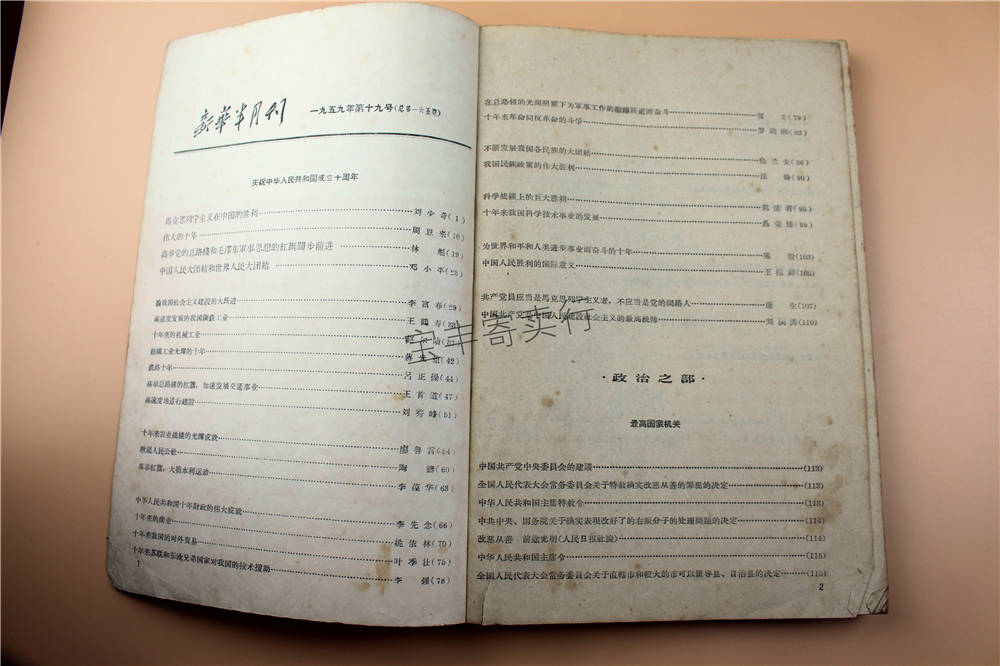 新華半月刊
一九五九年第十九号(总第一六五期)
庆祝中华人民共和国成立十周年
馬克思列宁主义在中国的胜利 刘少奇(1)
伟大的十年 周恩来(16)
高举党的总路綫和毛澤东軍事思想的紅旗闊步前进 林 彪(19)
中国人民大团結和世界人民大团結 邓小平(25)
論我国社会主义建設的大跃进 李富春(29)
高速度发展的我国鋼鉄工业 王鶴寿
十年来的机械工业
紡織工业光輝的十年 (42)
鉄路十年 呂正操(44)
高举总路綫的紅旗，加速发展交通事业 王首道(47)
高速度地进行建設 刘秀峰(51)
十年来农业战綫的光輝成就 廖魯言(54)
歌頌人民公社 陶 鑄(60)
高举紅旗，大搞水利运动 李葆华(63)
中华人民共和国十年財政的伟大成就 李先念(66)
十年来的商业 姚依林(70)
十年来我国的对外貿易 叶季壮(75)
十年来苏联和东欧兄弟国家对我国的技术援助 李 强(78)
1
在总路綫的光輝照耀下为軍事工作的繼續跃进而奋斗 賀 龙(79)
十年来革命同反革命的斗爭 罗瑞卿(83)
不断发展我国各民族的大团結 烏兰夫(86)
我国民族政策的伟大胜利 汪 鋒(90)
科学战綫上的巨大胜利 郭沫若(95)
十年来我国科学技术事业的发展 聶荣臻(99)
为世界和平和人类进步事业而奋斗的十年 陈 毅(103)
中国人民胜利的国际意义 王稼祥(105)
共产党員应当是馬克思列宁主义者，不应当是党的同路人 康 生(107)
中国共产党是中国人民建設社会主义的最高統帅 刘瀾涛(110)
·政治之部·
最高国家机关
中国共产党中央委員会的建議 (113)
全国人民代表大会常务委員会关于特赦确实改恶从善的罪犯的决定 (113)
中华人民共和国主席特赦令 (113)
中共中央、国务院关于确实表現改好了的右派分子的处理問題的决定 (114)
改恶从善 前途光明(人民日报社論) (114)
中华人民共和国主席令 (115)
全国人民代表大会常务委員会关于直轄市和較大的市可以領导县、自治县的决定 (115)
2
宝丰寄卖行